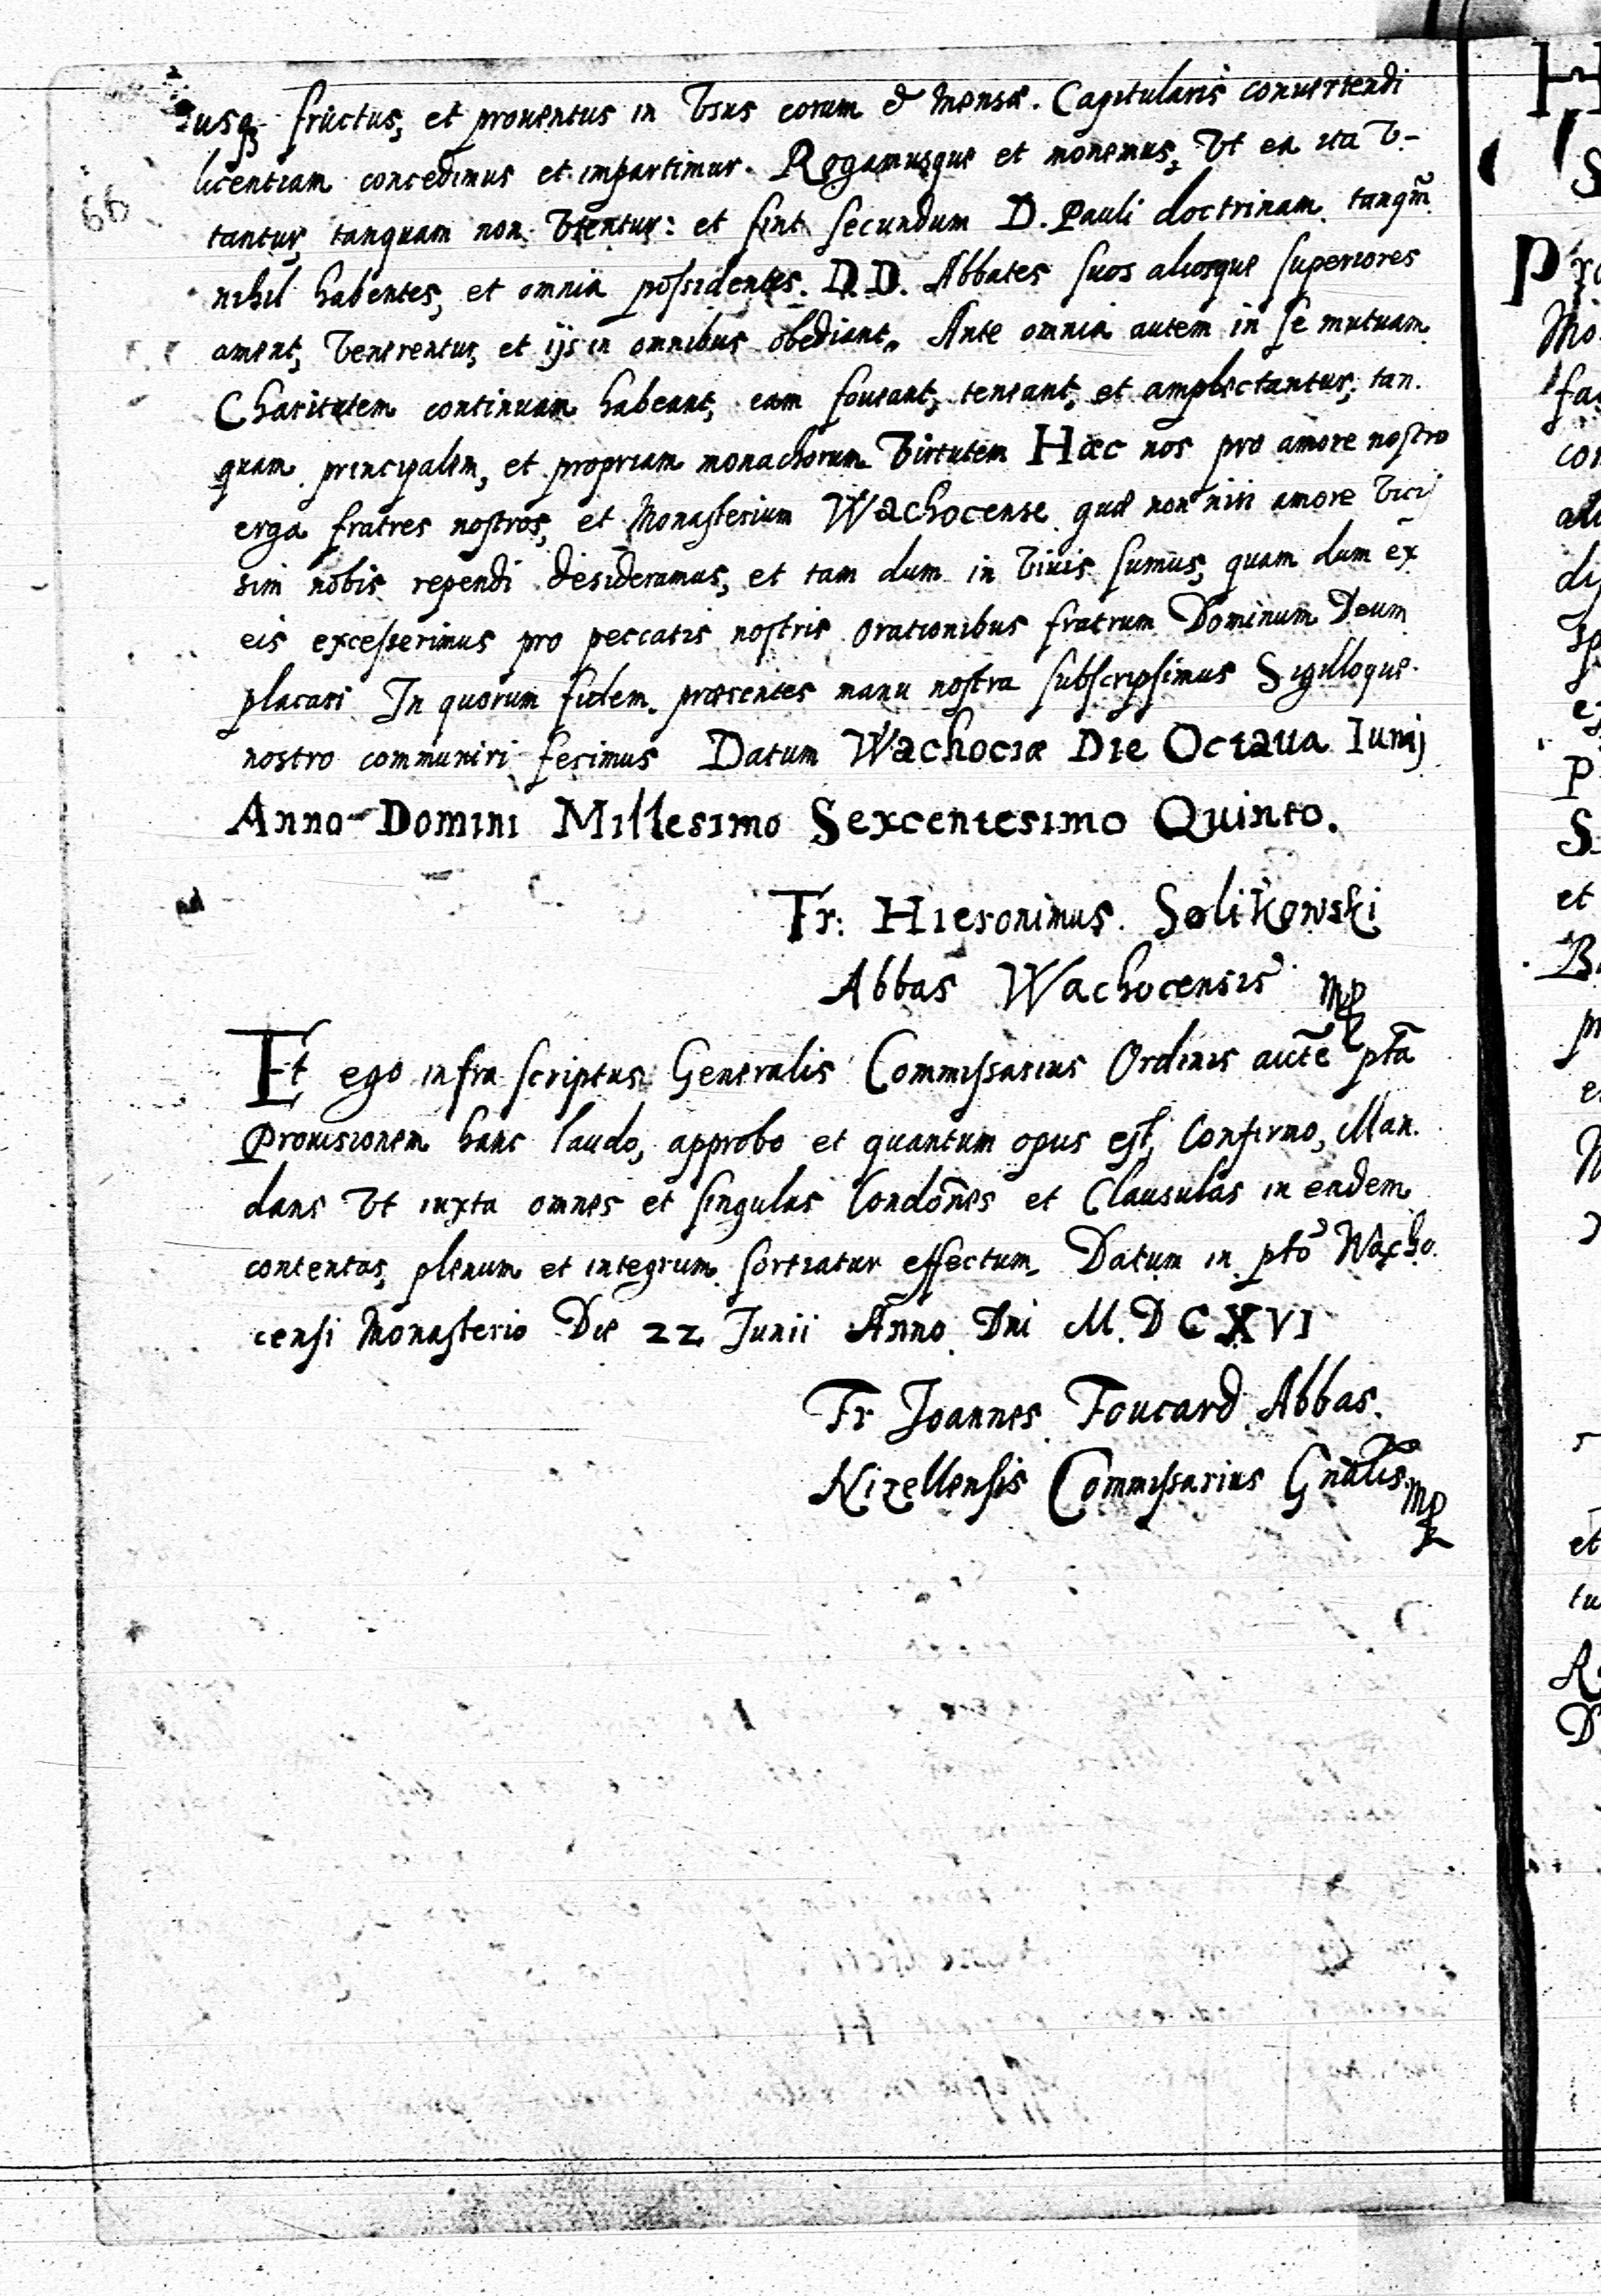 iusq3 fructus, et prouentus in Vsus eorum & Mensæ. Capitularis conuertendi
licentiam concedimus et impartimur. Rogamusque et monemus, Vt ea ita V-
tantur, tanquam non Vtentur: et sint secundum D. Pauli doctrinam tanqm̃
nihil habentes, et omnia possidentes. D.D. Abbates suos aliosque superiores
ament, Venerentur, et ijs in omnibus obediant. Ante omnia autem in se mutuam
Charitatem continuam habeant, eam foueant, teneant, et amplectantur, tan.
quam principalem, et propriam monachorum Virtutem Hæc nos pro amore nostro
erga fratres nostros, et Monasterium Wachocense quæ non nisi amore Vici
sim nobis rependi desideramus, et tam dum in Viuis sumus, quam dum ex
eis excesserimus pro peccatis nostris orationibus fratrum Dominum Deum
placari In quorum fidem præsentes manu nostra subscripsimus Sigilloque
nostro communiri fecimus Datum Wachociæ Die Octaua Iunij
Anno Domini Millesimo Sexcentesimo Quinto.
Fr: Hieronimus Solikowski
Abbas Wachocensis mp
Et ego infra scriptus Generalis Commissarius Ordinis aucte͂ pta͂
Prouisionem hanc laudo, approbo et quantum opus est, Confirmo, Man.
dans Vt iuxta omnes et singulas Condo͂nes et Clausulas in eadem
contentas, plenum et integrum sortiatur effectum. Datum in pto͂ Wacho.
censi Monasterio Die 22 Junii Anno Dni M.DCXVI
Fr Joannes Foucard Abbas
Nizellensis Commissarius Gn͂alis mp
66